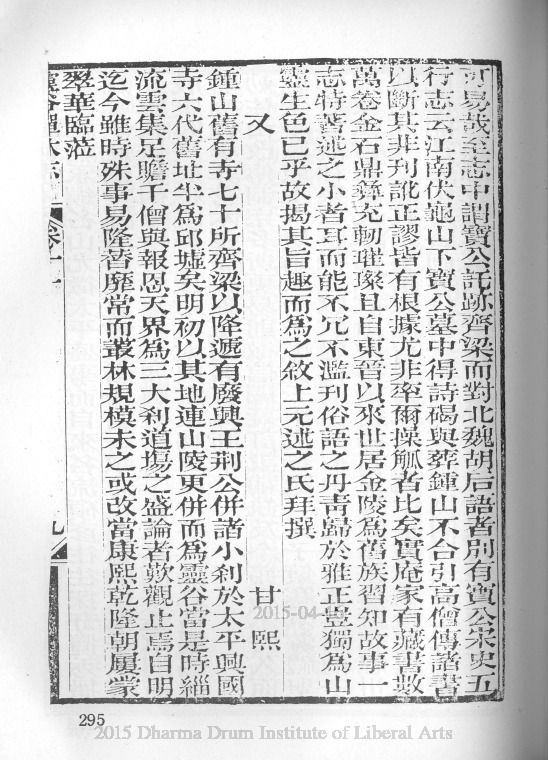 可易哉至志中謂寶公託跡齊梁而對北魏胡后語者別有寶公宋史五
行志云江南伏龜山下寶公墓中得詩碣與葬鍾山不合引高僧傳諸書
以斷其非刊訛正謬皆有根據尤非率爾操觚者比矣實庵家有藏書數
萬卷金石鼎彝充軔璀璨且自東晉以來世居金陵為舊族習知故事一
志特著述之小者耳而能不冗不濫刊俗語之丹青歸於雅正豈獨為山
靈生色已乎故揭其旨趣而為之敘上元述之氏拜撰
又 甘熙
鍾山舊有寺七十所齊梁以降遞有廢興王荊公併諸小剎於太平興國
寺六代舊址半為邱墟矣明初以其地連山陵更併而為靈谷當是時緇
流雲集足贍千僧與報恩天界為三大剎道場之盛論者歎觀止焉自明
迄今雖時殊事易隆替靡常而叢林規模未之或改當康熙乾隆朝屢蒙
翠華臨蒞
靈谷禪林志 卷十一 九
295
2015-04-
2015 Dharma Drum Institute of Liberal Arts